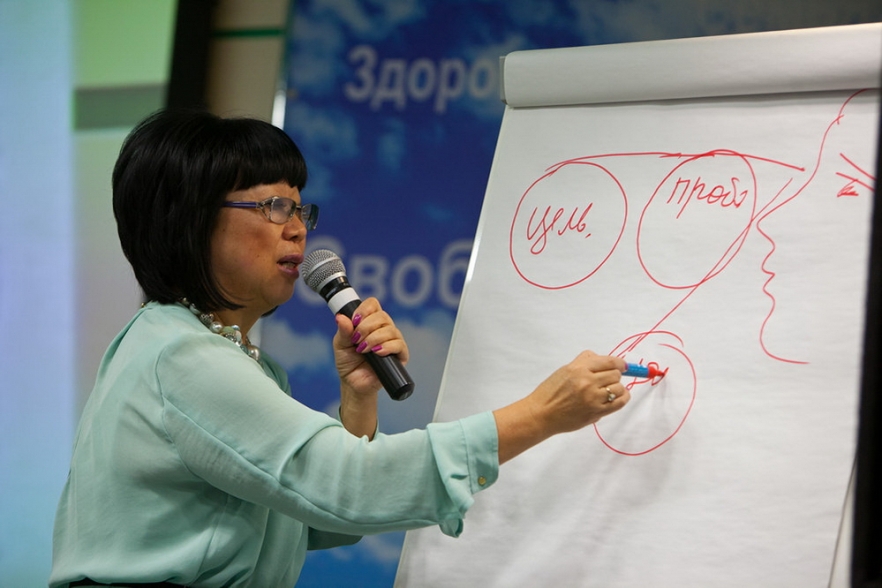 Здоро
Своб
цель,
проб